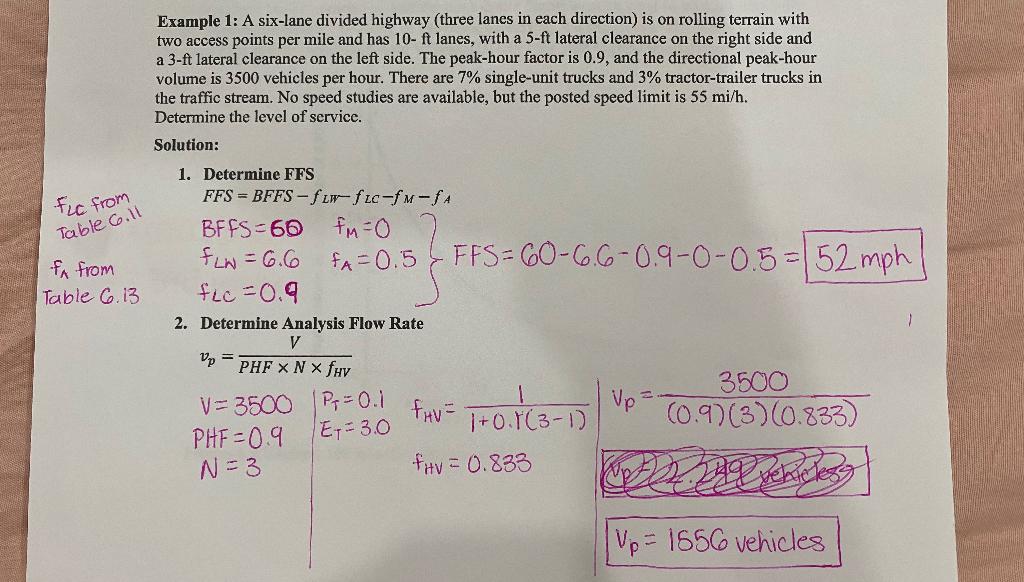 Example 1: A six-lane divided highway (three lanes in each direction) is on rolling terrain with
two access points per mile and has 10- ft lanes, with a 5-ft lateral clearance on the right side and
a 3-ft lateral clearance on the left side. The peak-hour factor is 0.9, and the directional peak-hour
volume is 3500 vehicles per hour. There are 7% single-unit trucks and 3% tractor-trailer trucks in
the traffic stream. No speed studies are available, but the posted speed limit is 55 mi/h.
Determine the level of service.
Solution:
1. Determine FFS
FFS = BFFS − f LW − f LC − f M − f A
fLC from
Table 6.11
BFFS = 60 fM = 0
fLW = 6.6 fA = 0.5
fLC = 0.9
FFS = 60-6.6-0.9-0-0.5 = 52 mph
fA from
Table 6.13
2. Determine Analysis Flow Rate
vp = V / PHF × N × fHV
V = 3500
PHF = 0.9
N = 3
PT = 0.1
ET = 3.0
fHV = 1 / 1+0.1(3-1)
fHV = 0.833
Vp = 3500 / (0.9)(3)(0.833)
Vp = 1556 vehicles